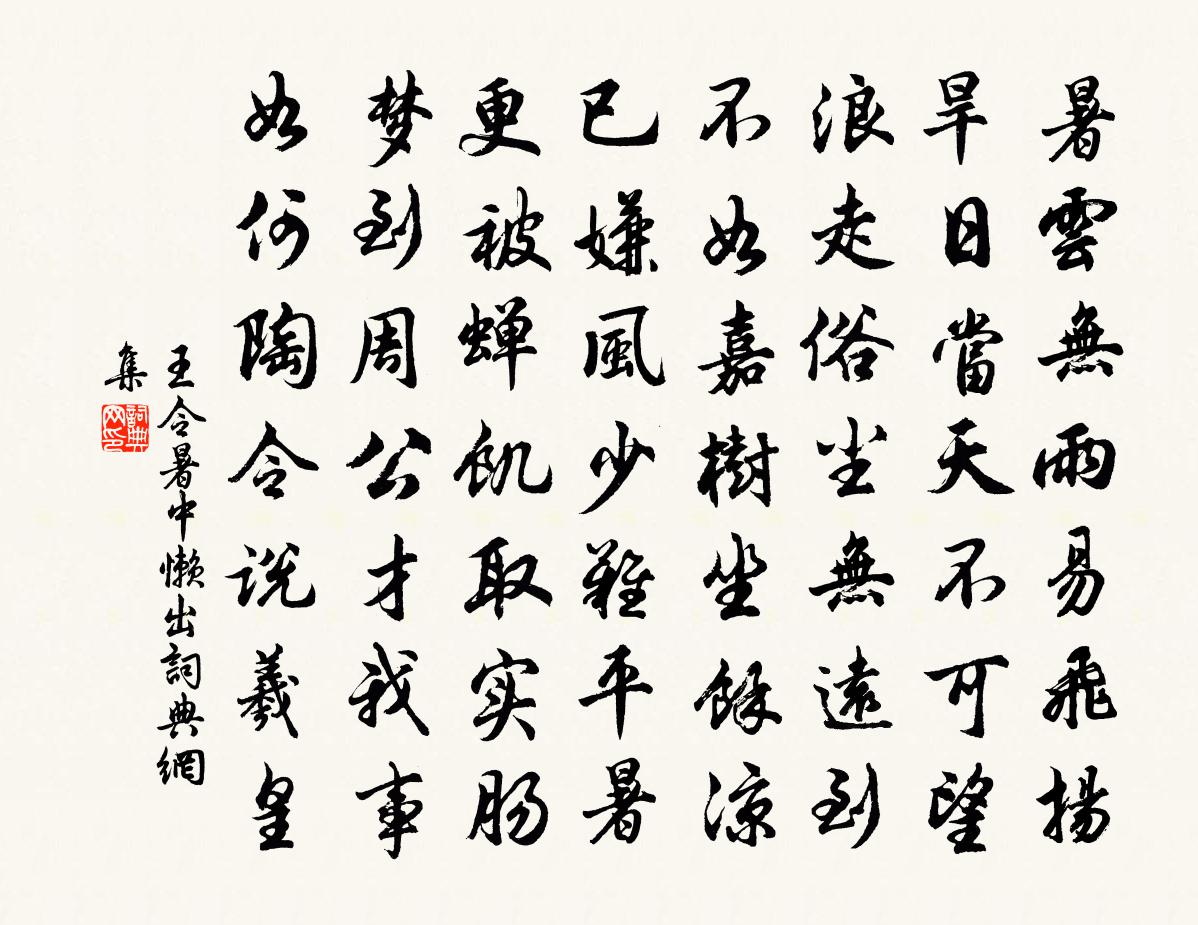 暑雲無雨易飛揚
旱日當天不可望
浪走俗尘無遠到
不如嘉樹坐餘凉
已嫌風少難平暑
更被蝉飢取实肠
梦到周公才我事
如何陶令说羲皇
王令暑中懒出詞典網
集
詞典网印